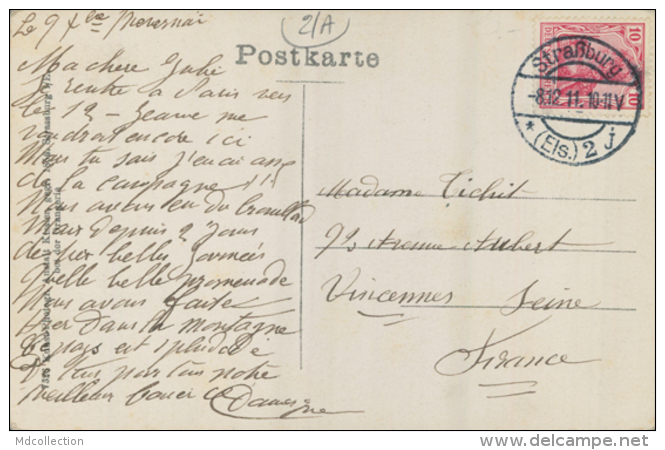 2/A
Postkarte
Ma chere Julie
Je rentre a Paris vers
le 12 – Jeanne me
voudrait encore ici
Mais tu sais j'en ai assez
de la campagne !!!
Nous avons eu du brouillard
Mais depuis 2 jours
de très belles journées
Quelle belle promenade
Nous avons faite
hier dans la montagne
Le pays est splendide
A tous par tous notre
meilleur
Straßburg
-8.12.11.10-11V
* (Els.) 2 j
10
10
Madame Tichit
92 Avenue Aubert
Vincennes Seine
France
Mdcollection
www.delcampe.net